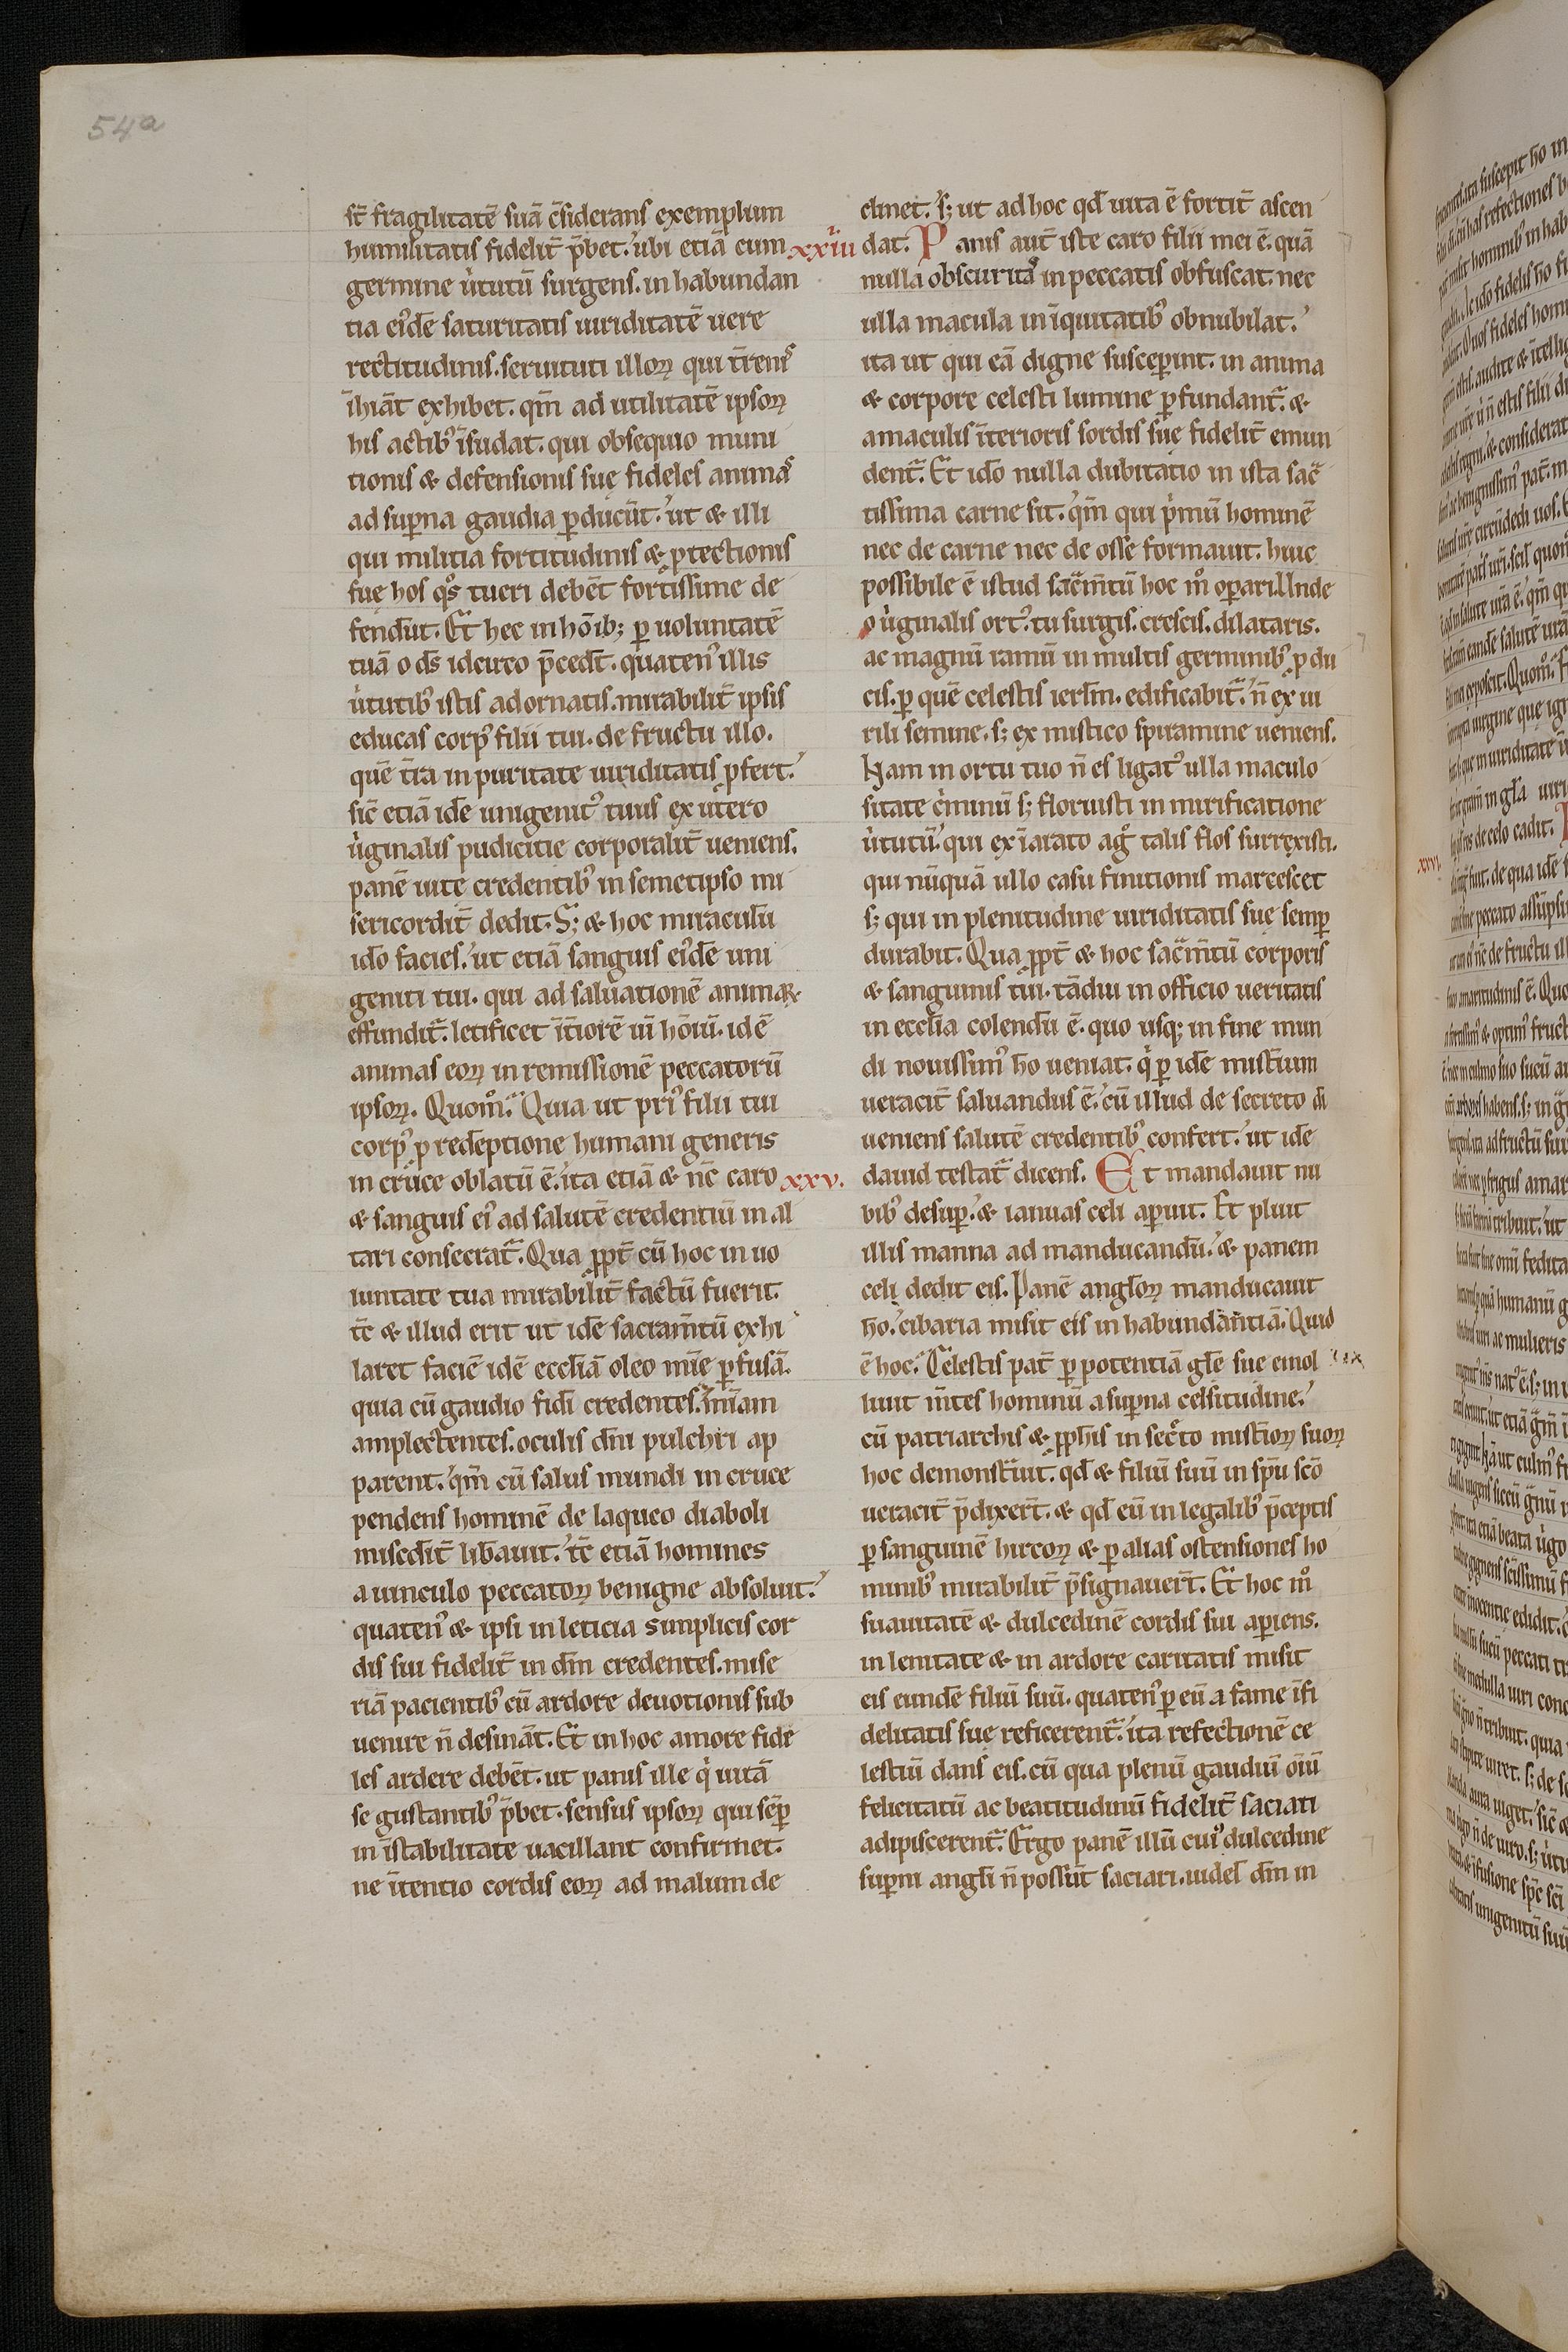 54a
st̄ fragilitatē suā c̄siderans exemplum
humilitatis fidelit̄ p̄bet. ubi etiā cum
germine u̇tutū surgens. in habundan
tia eiꝰdē saturitatis uiriditatē uere
rectitudinis. seruituti illoꝝ qui t̄renis
īhiāt exhibet. qm̄ ad utilitatē ipsoꝝ
his actibꝰ īsudat. qui obsequio muni
tionis & defensionis suę fideles animas
ad supͥna gaudia ꝑducūt. ut & illi
qui militia fortitudinis & ꝓtectionis
suę hos qͦs tueri debēt fortissime de
fendūt. Et hec in hōib; ꝑ uoluntatē
tuā o ds̄ idcirco p̄cedt̄. quatenꝰ illis
u̇tutibꝰ istis adornatis. mirabilit̄ ipsis
educas corpꝰ filii tui. de fructu illo.
quē t̄ra in puritate uiriditatis ꝓfert.
sic̄ etiā idē unigenitꝰ tuus ex utero
u̇ginalis pudicitie corporalit̄ ueniens.
panē uite credentibꝰ in semetipso mi
sericordit̄ dedit. S; & hoc miraculū
ido̅ facies. ut etiā sanguis eiꝰdē uni
geniti tui. qui ad saluationē animaꝝ
effundit᷑. letificet īt̄iorē uī hōiū. id ē
animas eoꝝ in remissionē peccatorū
ipsoꝝ. Quom̊. Quia ut priꝰ filii tui
corpꝰ ꝓ redēptione humani generis
in cruce oblatū ē. ita etiā & nc̄ caro
& sanguis eiꝰ ad salutē credentiū in al
tari consecrat᷑. Qua ꝓpt̄ cū hoc in uo
luntate tua mirabilit̄ factū fuerit.
tc̄ & illud erit ut idē sacram̄tū exhi
laret faciē idē eccl̄iā oleo mīe ꝑfusā.
quia cū gaudio fidī credentes. mīam
amplectentes. oculis dn̄i pulchri ap
parent. qm̄ cū salus mundi in cruce
pendens hominē de laqueo diaboli
misedit̄ lib̄auit. tc̄ etiā homines
a uinculo peccatoꝝ benigne absoluit.
quatenꝰ & ipsi in leticia simplicis cor
dis sui fidelit̄ in dm̄ credentes. mise
riā pacientibꝰ cū ardore deuotionis sub
uenire n̄ desināt. Et in hoc amore fide
les ardere debēt. ut panis ille qi̇ uitā
se gustantibꝰ p̄bet. sensus ipsoꝝ qui sēꝑ
in īstabilitate uacillant confirmet.
ne ītentio cordis eoꝝ ad malum de
clinet. s; ut ad hoc qd̄ uita ē fortit̄ ascen
xxiiii dat. Panis aut̄ iste caro filii mei ē. quā
nulla obscuritas in peccatis obfuscat. nec
ulla macula in īquitatibꝰ obnubilat.
ita ut qui eā digne susceꝑint. in anima
& corpore celesti lumine ꝑfundant᷑. &
a maculis īterioris sordis sue fidelit̄ emun
dent᷑. Et ido̅ nulla dubitatio in ista sac̄
tissima carne sit. qm̄ qui pi̇mū hominē
nec de carne nec de osse formauit. huic
possibile ē istud sac̄m̄tū hoc m̊ oꝑari. Unde
o u̇ginalis ortꝰ. tu surgis. crescis. dilataris.
ac magnū ramū in multis germinibꝰ ꝓdu
cis. ꝑ quē celestis ierl̄m. edificabit᷑. n̄ ex ui
rili semine. s; ex mistico spiramine ueniens.
Nam in ortu tuo n̄ es ligatꝰ ulla maculo
sitate c̓minū s; floruisti in mirificatione
u̇tutū. qui ex īarato agͦ talis flos surrexisti.
qui nūquā ullo casu finitionis marcescet
s; qui in plenitudine uiriditatis sue semꝑ
durabit. Qua ꝓpt̄ & hoc sac̄m̄tū corporis
& sanguinis tui. tādiu in officio ueritatis
in eccl̄ia colendū ē. quo usq; in fine mun
di nouissimꝰ h̄o ueniat. qi̇ ꝑ idē mist̄ium
ueracit̄ saluandus ē. cū illud de secreto dī
ueniens salutē credentibꝰ confert. ut idē
xxv. dauid testat᷑ dicens. Et mandauit nu
bibꝰ desuꝑ. & ianuas celi aꝑuit. Et pluit
illis manna ad manducandū. & panem
celi dedit eis. Panē angl̄oꝝ manducauit
h̄o. cibaria misit eis in habundantiā. Quid
ē hoc. Celestis pat̄ ꝑ potentiā gl̄e sue emol
liuit m̄tes hominū a suꝑna celsitudine.
cū patriarchis & ꝓph̄is in sec̓to mist̄ioꝝ suoꝝ
hoc demonst̄uit. qd̄ & filiū suū in sp̄u sc̄o
ueracit̄ p̄dixer̄t. & qd̄ eū in legalibꝰ p̄ceptis
ꝑ sanguinē hircoꝝ & ꝑ alias ostensiones ho
minibꝰ mirabilit̄ p̄signauer̄t. Et hoc m̊
suauitatē & dulcedinē cordis sui aꝑiens.
in lenitate & in ardore caritatis misit
eis eundē filiū suū. quatenꝰ ꝑ eū a fame īfi
delitatis sue reficerent᷑. ita refectionē ce
lestiū dans eis. cū qua plenū gaudiū oīū
felicitatū ac beatitudinū fidelit̄ saciati
adipiscerent᷑. Ergo panē illū cuiꝰ dulcedine
suꝑni angl̄i n̄ possūt saciari. uidel̄ dm̄ in